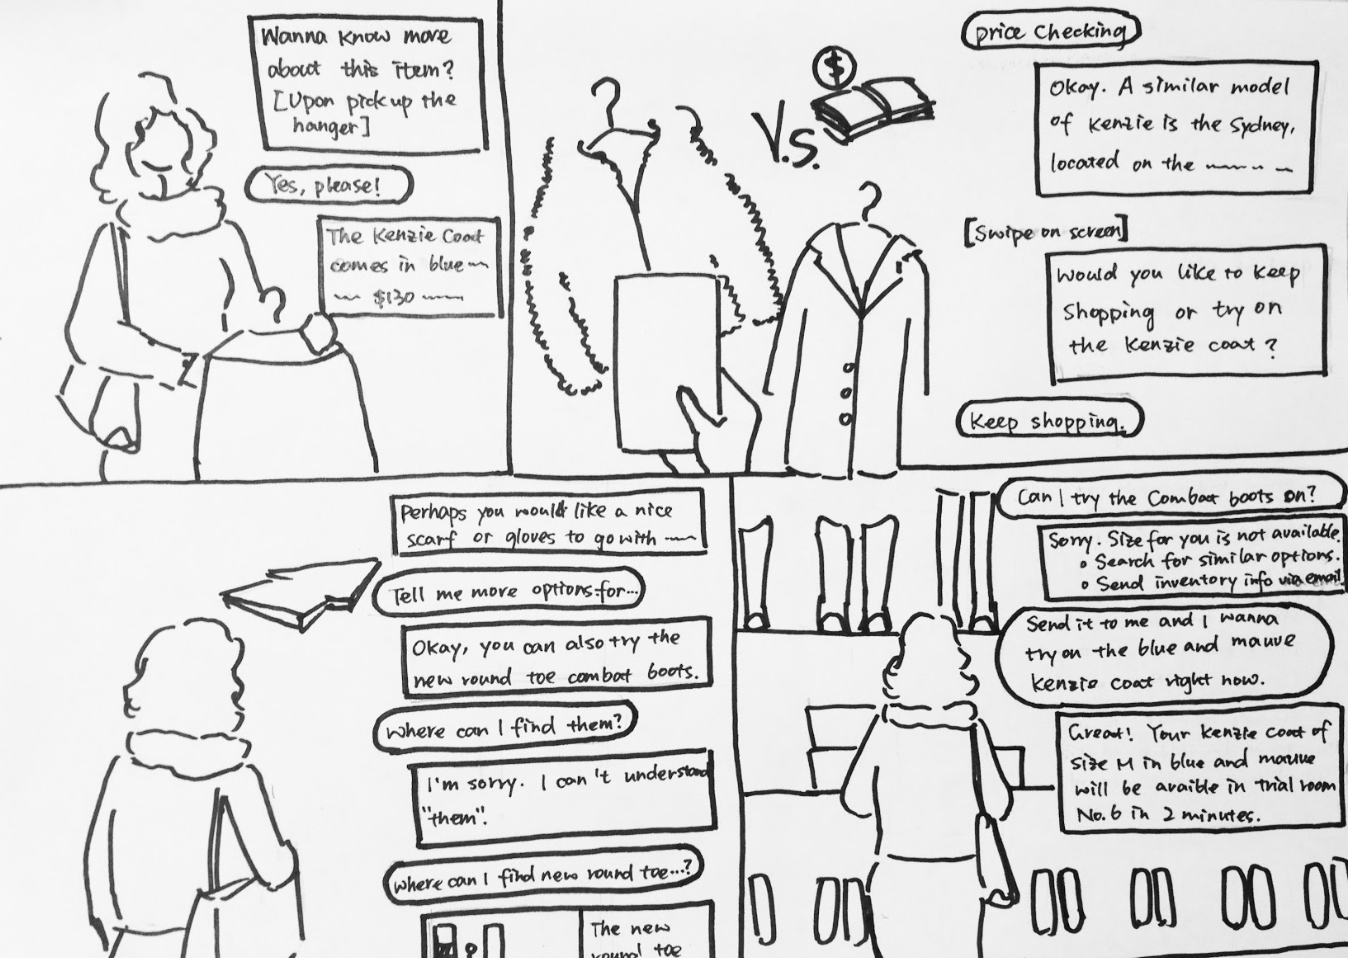 Wanna know more
about this item?
[Upon pick up the
hanger]
Yes, please!
The Kenzie Coat
comes in blue
$130
V.S.
$
price checking
Okay. A similar model
of Kenzie is the Sydney,
located on the
[Swipe on screen]
Would you like to keep
shopping or try on
the Kenzie coat?
Keep shopping.
Perhaps you would like a nice
scarf or gloves to go with
Tell me more options for...
Okay, you can also try the
new round toe combat boots.
Where can I find them?
I'm sorry. I can't understand
"them".
Where can I find new round toe...?
The new
round toe
Can I try the Combat boots on?
Sorry. Size for you is not available.
• Search for similar options.
• Send inventory info via email
Send it to me and I wanna
try on the blue and mauve
Kenzie coat right now.
Great! Your Kenzie coat of
size M in blue and mauve
will be avaible in trial room
No.6 in 2 minutes.